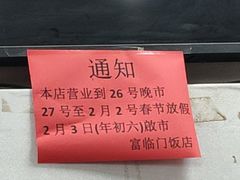 通知
本店营业到 26 号晚市
27 号至 2 月 2 号春节放假
2 月 3 日(年初六)啟市
富临门饭店